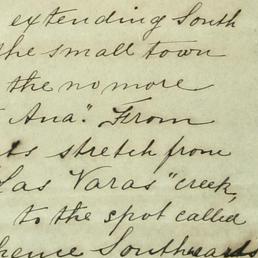 extending South
the small town
the no more
Ana". From
its stretch from
Las Varas" creek,
to the spot called
hence Southwards